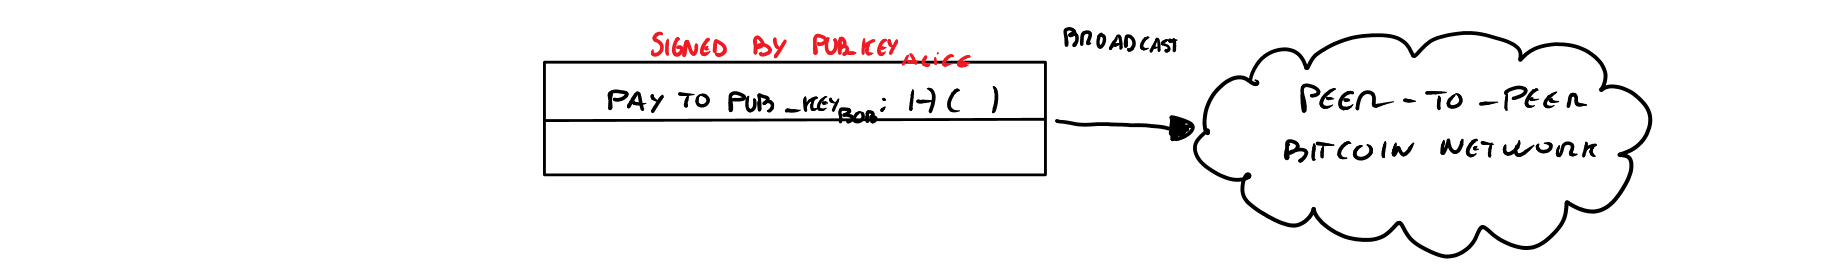 SIGNED BY PUB_KEY ALICE
PAY TO PUB_KEY BOB: H( )
BROADCAST
PEER-TO-PEER
BITCOIN NETWORK